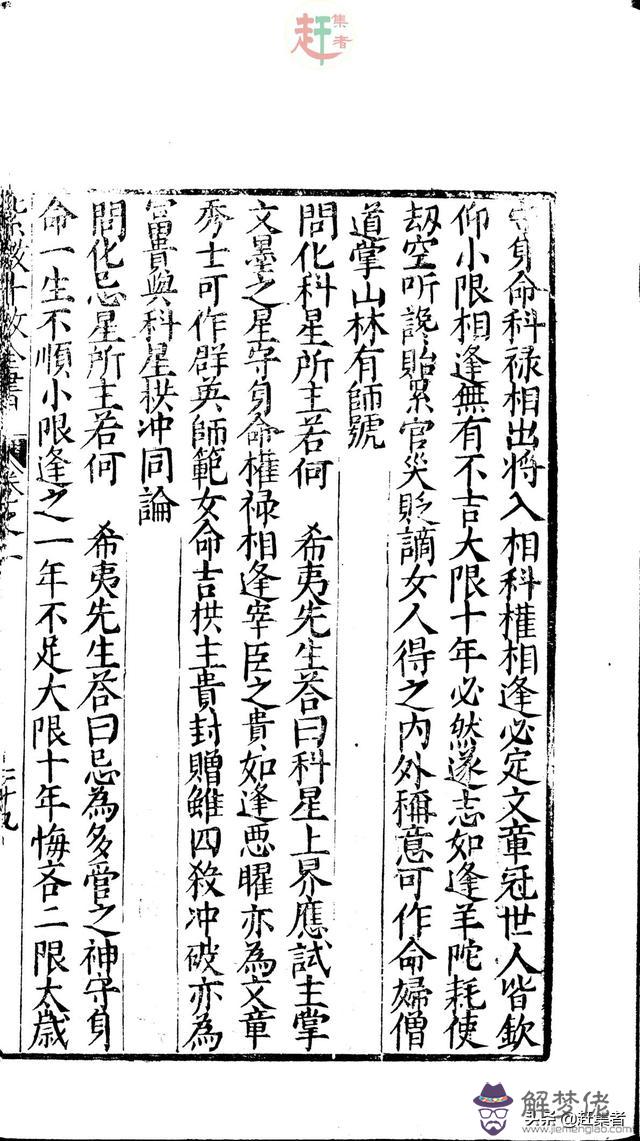 赶集者
守身命科禄相出將入相科權相逢必定文章冠世人皆欽
仰小限相逢無有不吉大限十年必然遂志如逢羊陀耗使
刼空听讒貽累官災貶謫女人得之内外稱意可作命婦僧
道掌山林有師號
問化科星所主若何　希夷先生荅曰科星上界應試主掌
文墨之星守身命權禄相逢宰臣之貴如逢惡曜亦為文章
秀士可作群英師範女命吉拱主貴封贈雖四殺冲破亦為
富貴與科星拱冲同論
問化忌星所主若何　希夷先生荅曰忌為多管之神守身
命一生不順小限逢之一年不足大限十年悔吝二限太歲
紫微斗數全書　卷之一　二十九
解梦佬
www.jiemenglab.com
头条 @赶集者